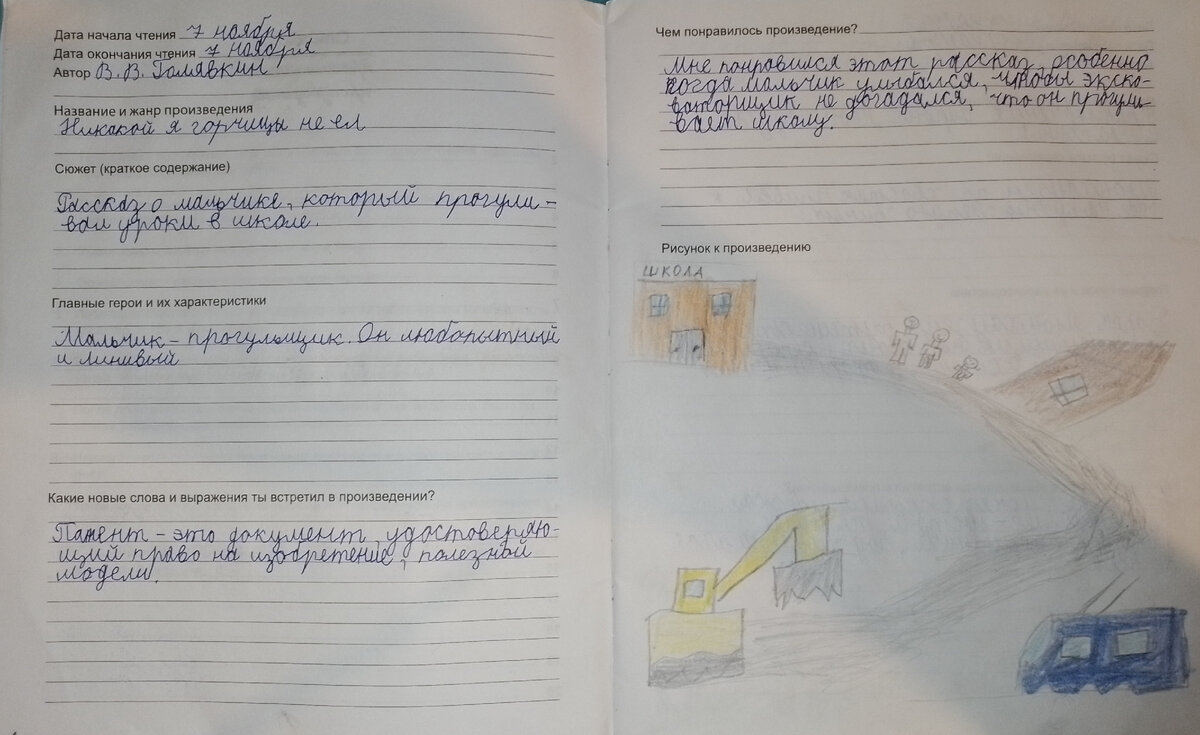 Дата начала чтения 7 ноября
Дата окончания чтения 7 ноября
Автор В. В. Голявкин
Название и жанр произведения
Никакой я горчицы не ел
Сюжет (краткое содержание)
Рассказ о мальчике, который прогули-
вал уроки в школе.
Главные герои и их характеристики
Мальчик – прогульщик. Он любопытный
и линивый
Какие новые слова и выражения ты встретил в произведении?
Патент – это документ, удостоверяю-
щий право на изобретение, полезной
модели.
Чем понравилось произведение?
Мне понравился этот рассказ, особенно
когда мальчик улыбался, чтобы экска-
ваторщик не догадался, что он прогули-
вает школу.
Рисунок к произведению
ШКОЛА